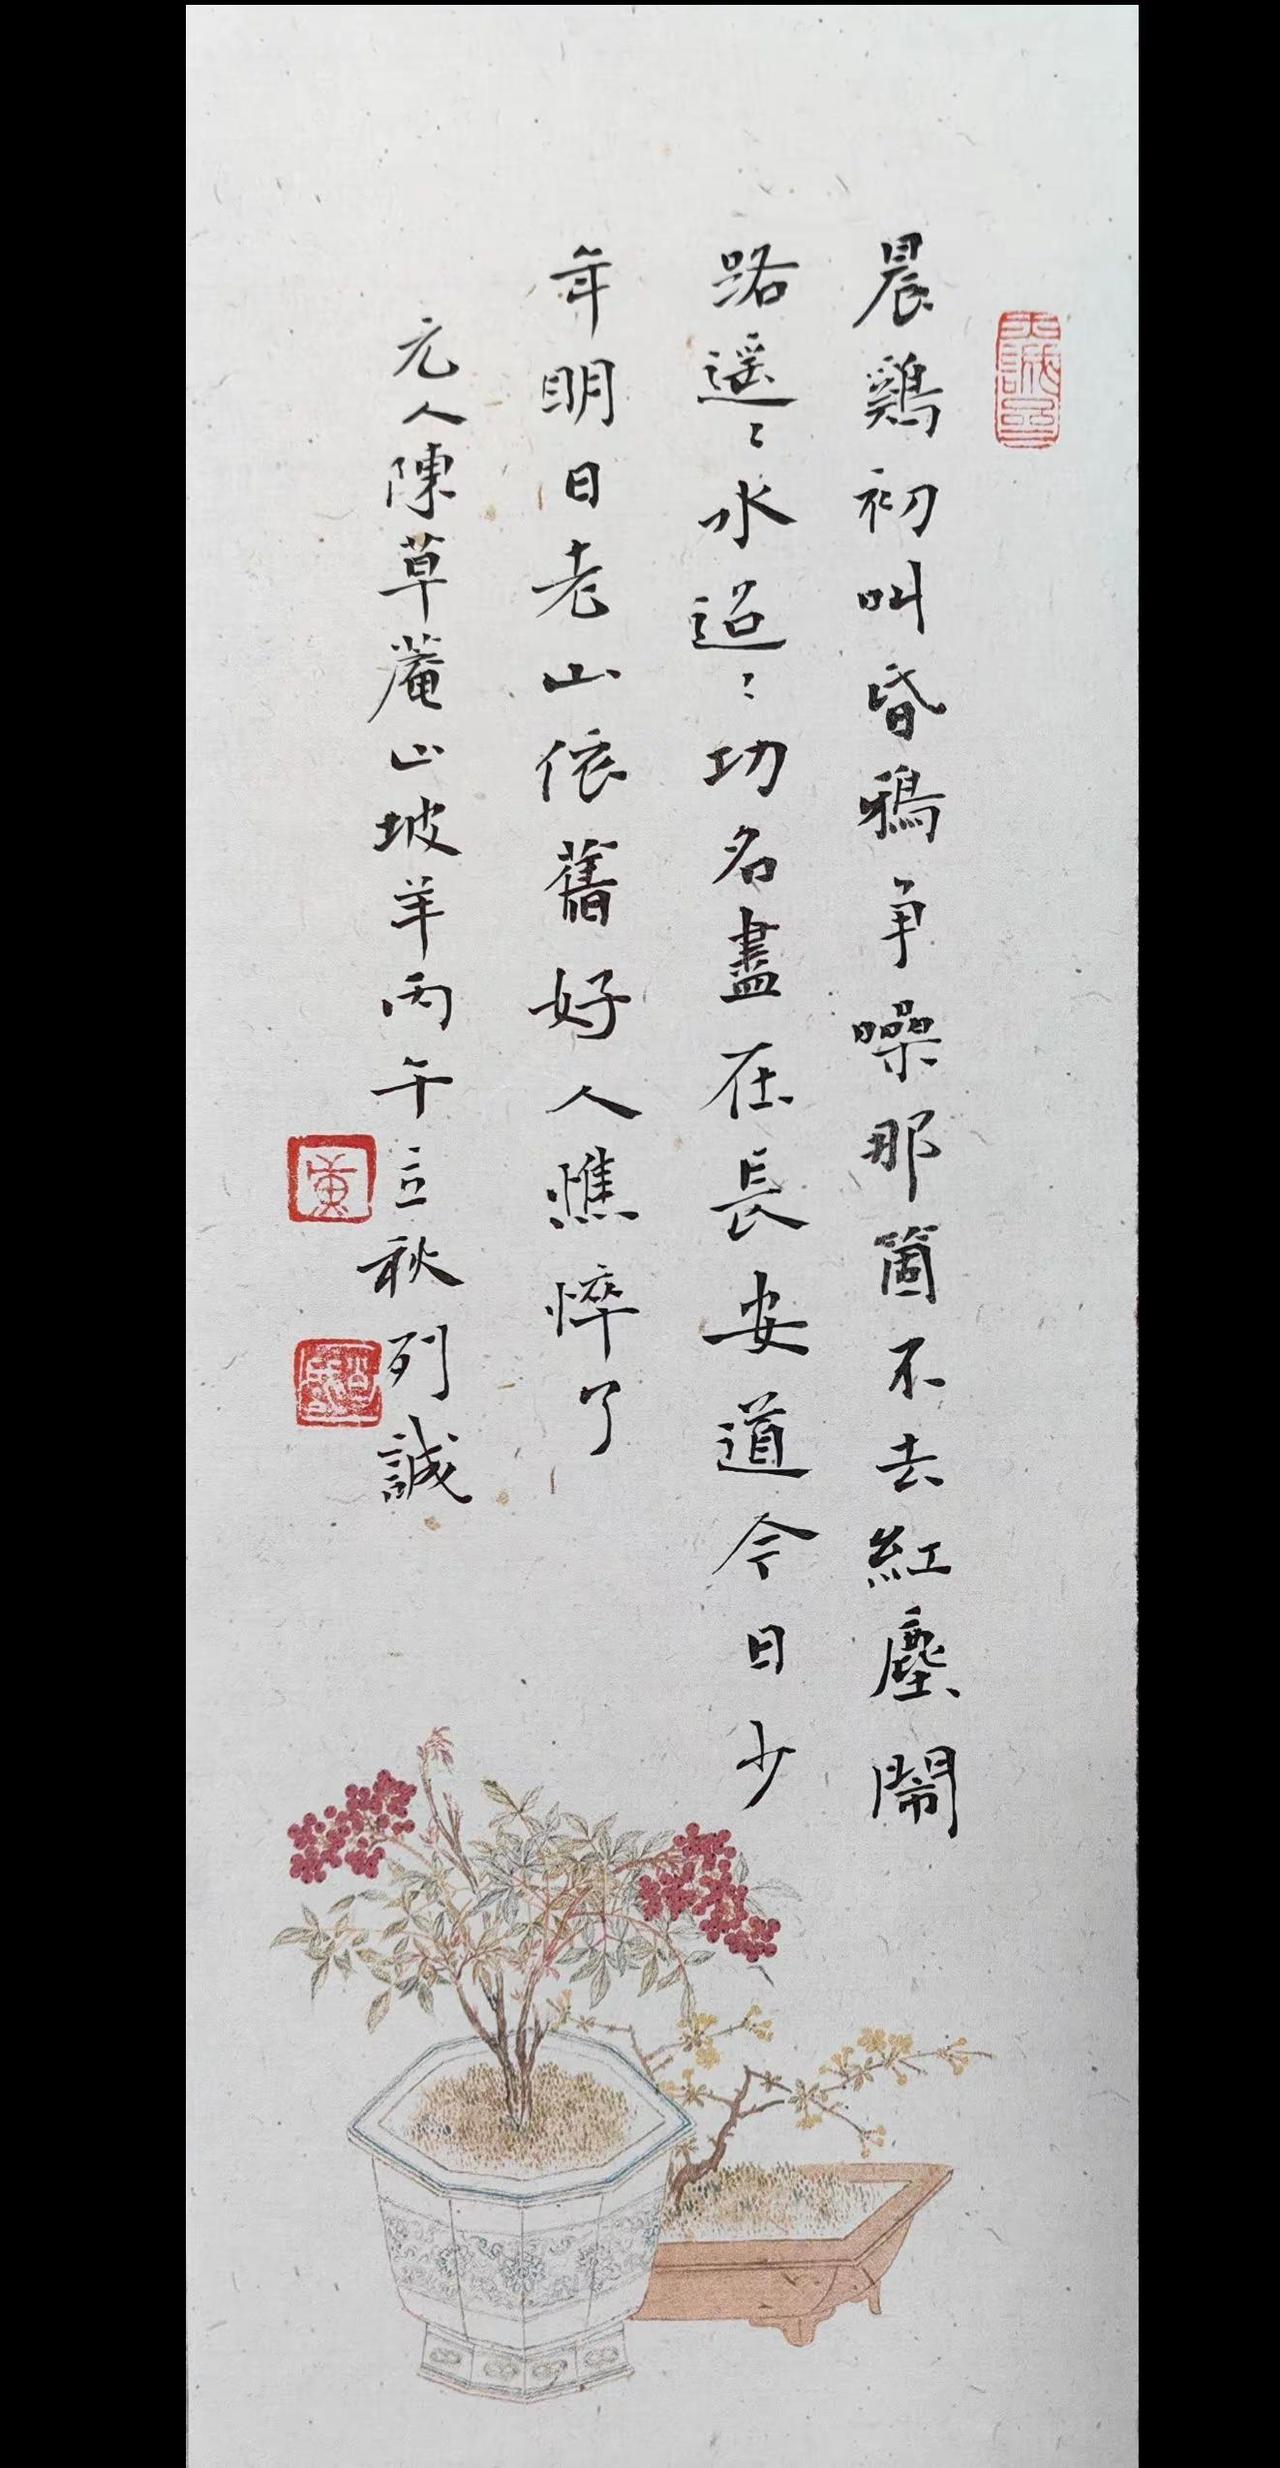 晨鷄初叫昏鴉爭噪那箇不去紅塵鬧
路遥〻水迢〻功名盡在長安道今日少
年明日老山依舊好人憔悴了
元人陳草菴山坡羊丙午立秋列誠
黄